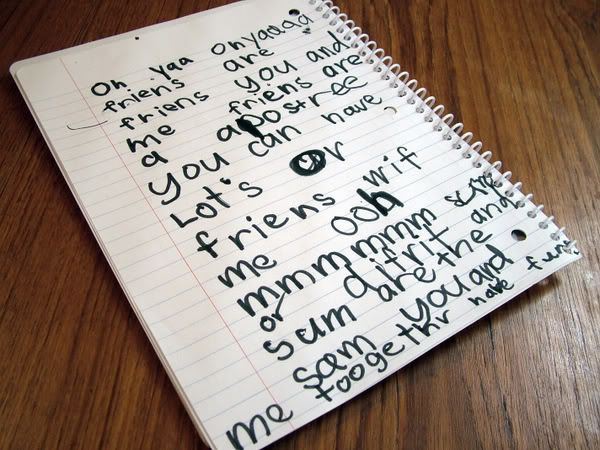 Oh Yaa Ohyaaaa
friens are
friens you and
me friens are
a apostree
you can have
Lot's or
friens wif
me ooh
mmmmmmm
or difrit and
sum are the
sam you and
me toogethr have fun